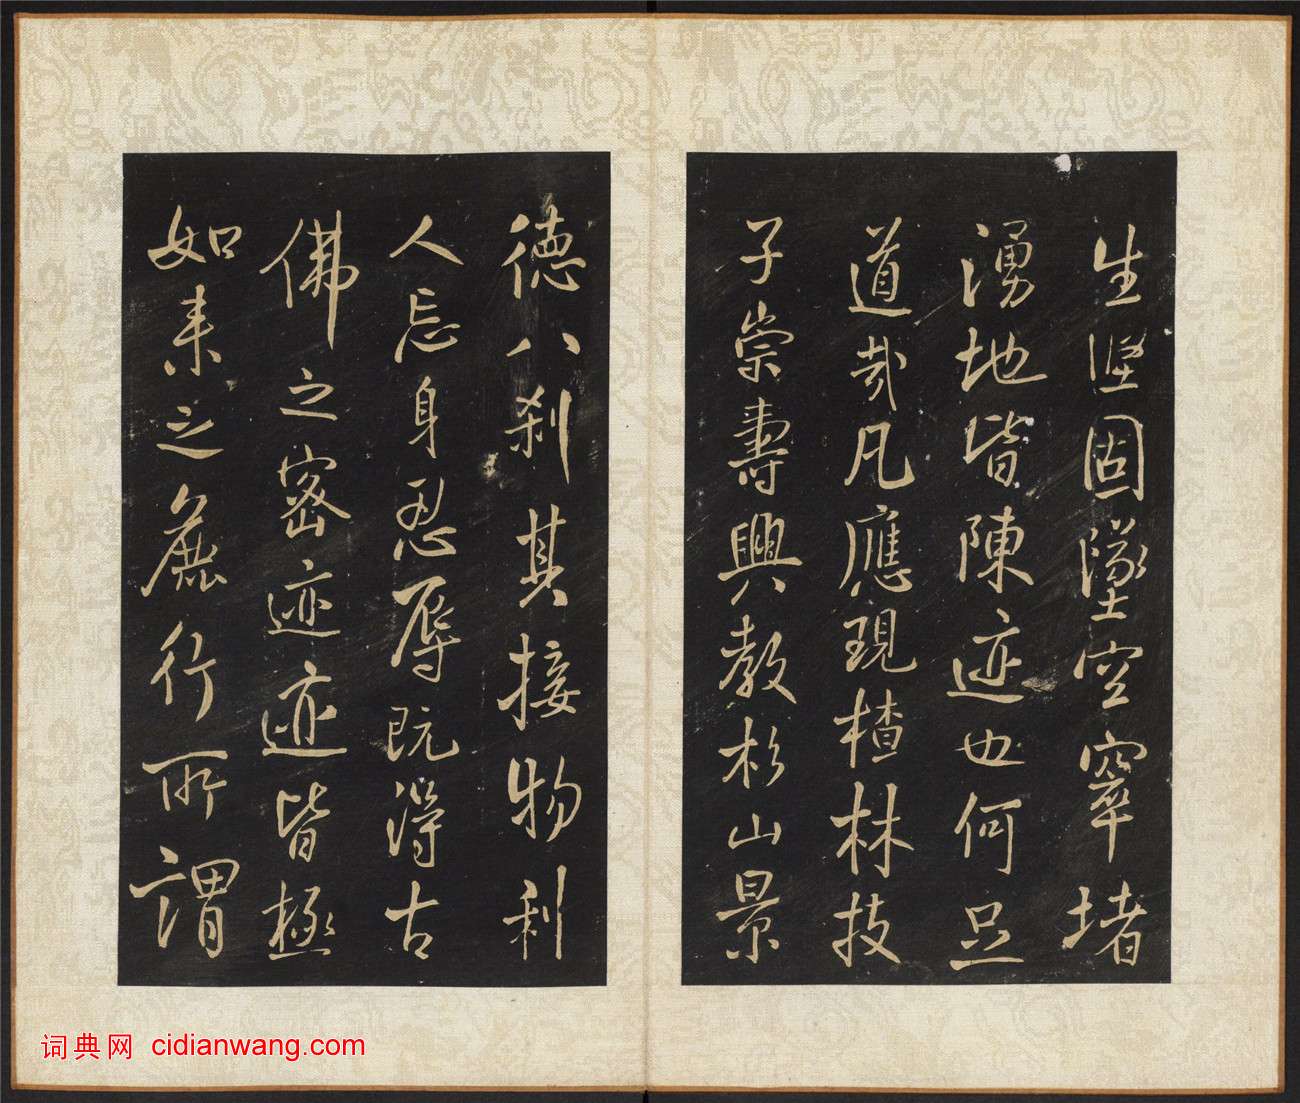 生湮固墜空窣堵
湧地皆陳迹也何足
道哉凡應現樝林技
子崇壽興教杉山景
德八刹其接物利
人忘身忍辱既得古
佛之密迹迹皆極
如来之麁行所謂
词典网 cidianwang.com